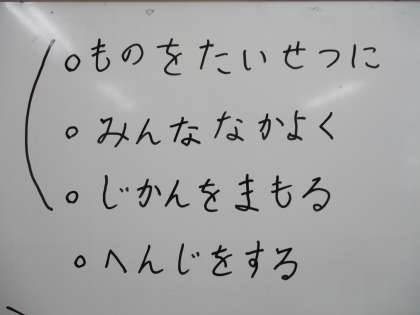 ○ ものをたいせつに
○ みんななかよく
○ じかんをまもる
○ へんじをする